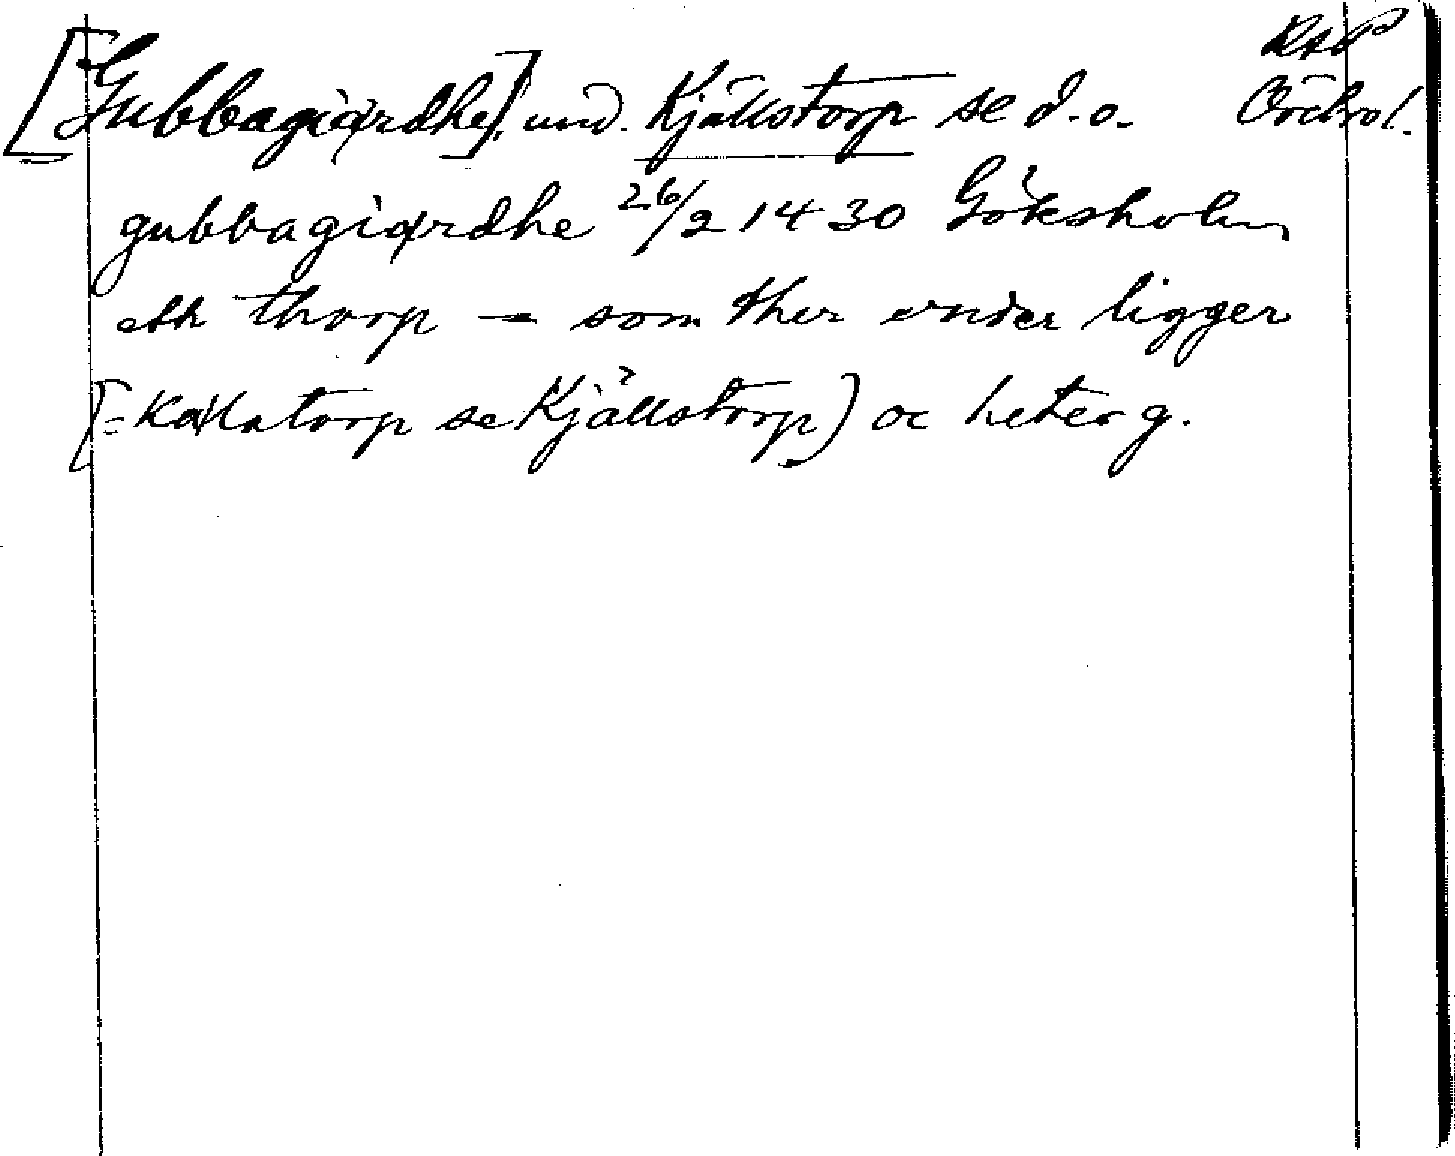 RAP
[Gubbagiærdhe], und. Kjällstorp se d.o. Örebro l.
gubbagiærdhe 26/2 1430 Göksholm
eth thorp – som ther under ligger
[= Kællatorp se Kjällstorp) oc heter g.